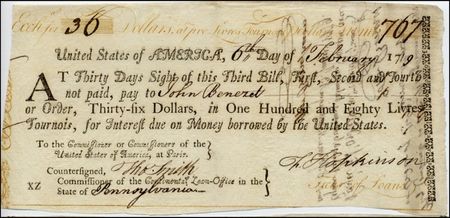 Exch for 36 Dollars, at five Livres Tournois 767
United States of AMERICA, 6th Day of February 1779
AT Thirty Days Sight of this Third Bill, First, Second and Fourth
not paid, pay to John Benezet
or Order, Thirty-six Dollars, in One Hundred and Eighty Livres
Tournois, for Interest due on Money borrowed by the United States.
To the Commissioner or Commissioners of the
United States of America, at Paris.
Countersigned, Tho Smith
Commissioner of the Continental Loan-Office in the
State of Pennsylvania
XZ
F. Hopkinson
Treasr of Loans